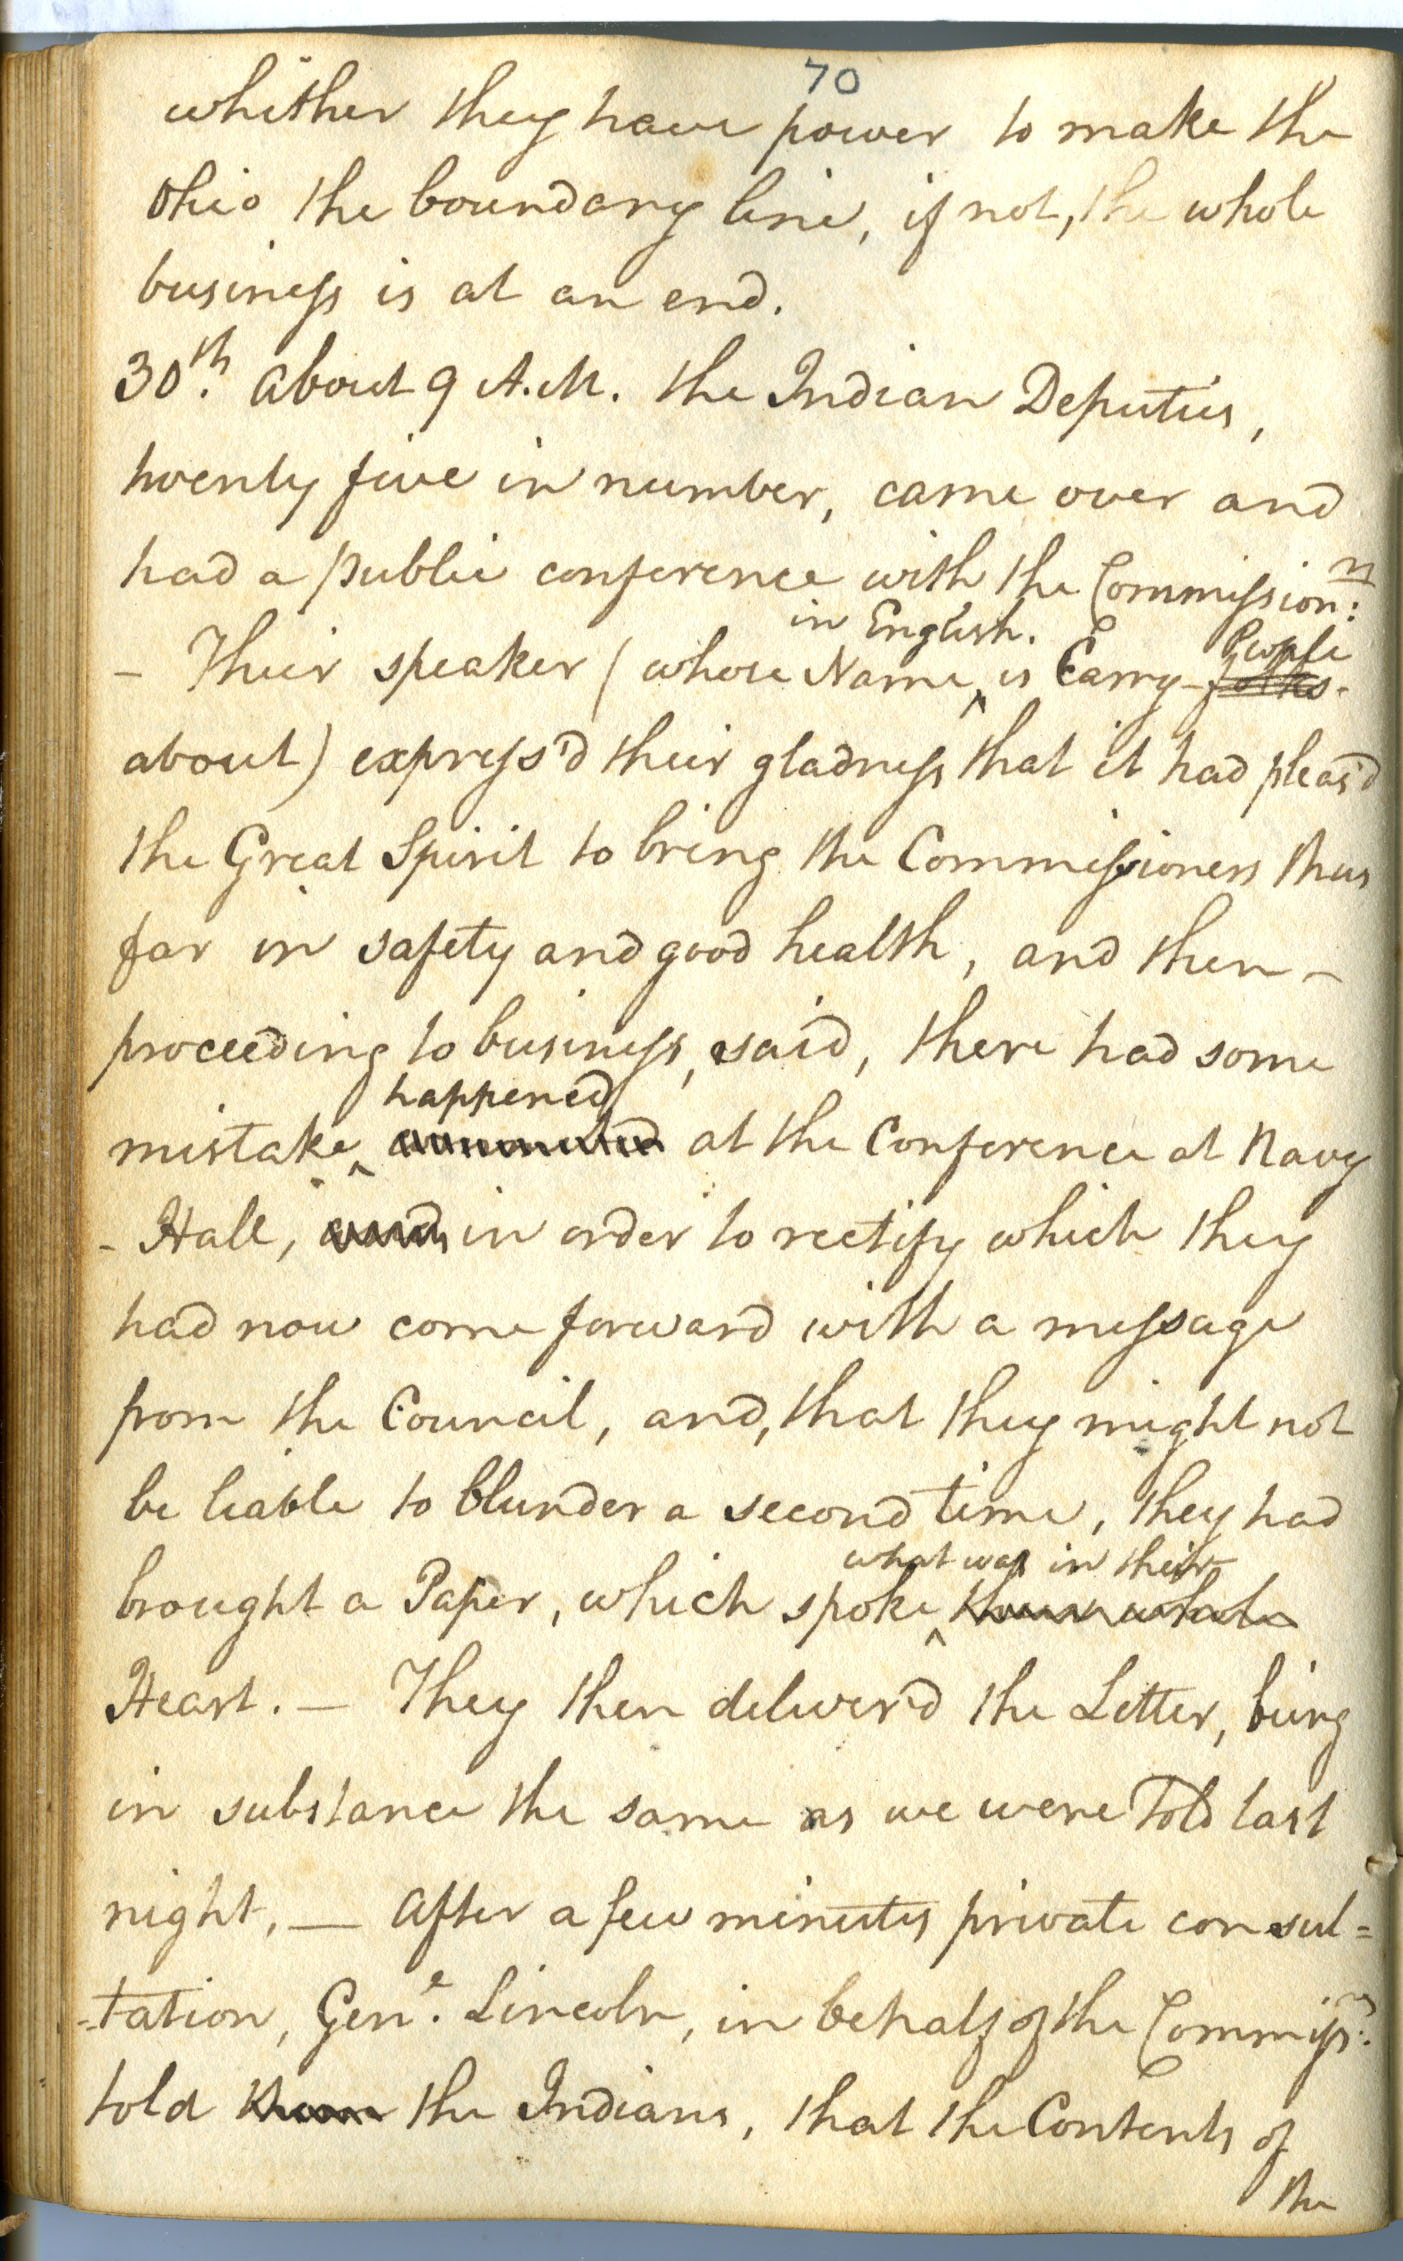 70
whither they have power to make the
Ohio the boundary line, if not, the whole
business is at an end.
30th. About 9 A.M. the Indian Deputies,
twenty five in number, came over and
had a public conference with the Commission:rs
in English. People
– Their speaker (whose Name ^ is Carry-folks-
about) express'd their gladness that it had pleas'd
the Great Spirit to bring the Commissioners thus
far in safety and good health, and then –
proceeding to business, said, there had some
happened
mistake ^ at the Conference at Navy
- Hall, and in order to rectify which they
had now come forward with a message
from the Council, and, that they might not
be liable to blunder a second time, they had
what was in their
brought a Paper, which spoke ^ their whole
Heart. – They then deliver'd the Letter, being
in substance the same as we were told last
night. — After a few minutes private consul=
-tation, Genl. Lincoln, in behalf of the Commissrs:
told them the Indians, that the Contents of
the